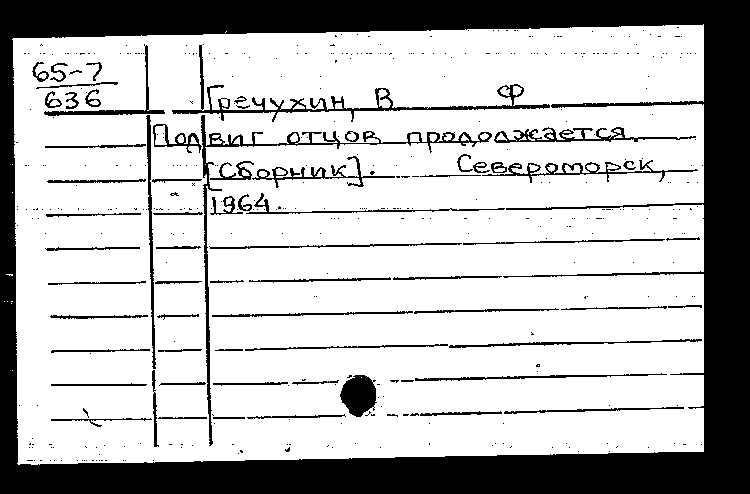 65-7
636
Гречухин, В ф
Подвиг отцов продолжается.
[Сборник]. Североморск,
1964.